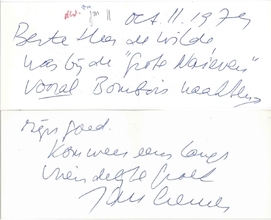 oct. 11. 1979
Beste Heer de Wilde
was bij de "Grote Naïeven"
vooral Bombois
erg goed.
Kom eens langs
vriendelijke groet
Jan Cremer